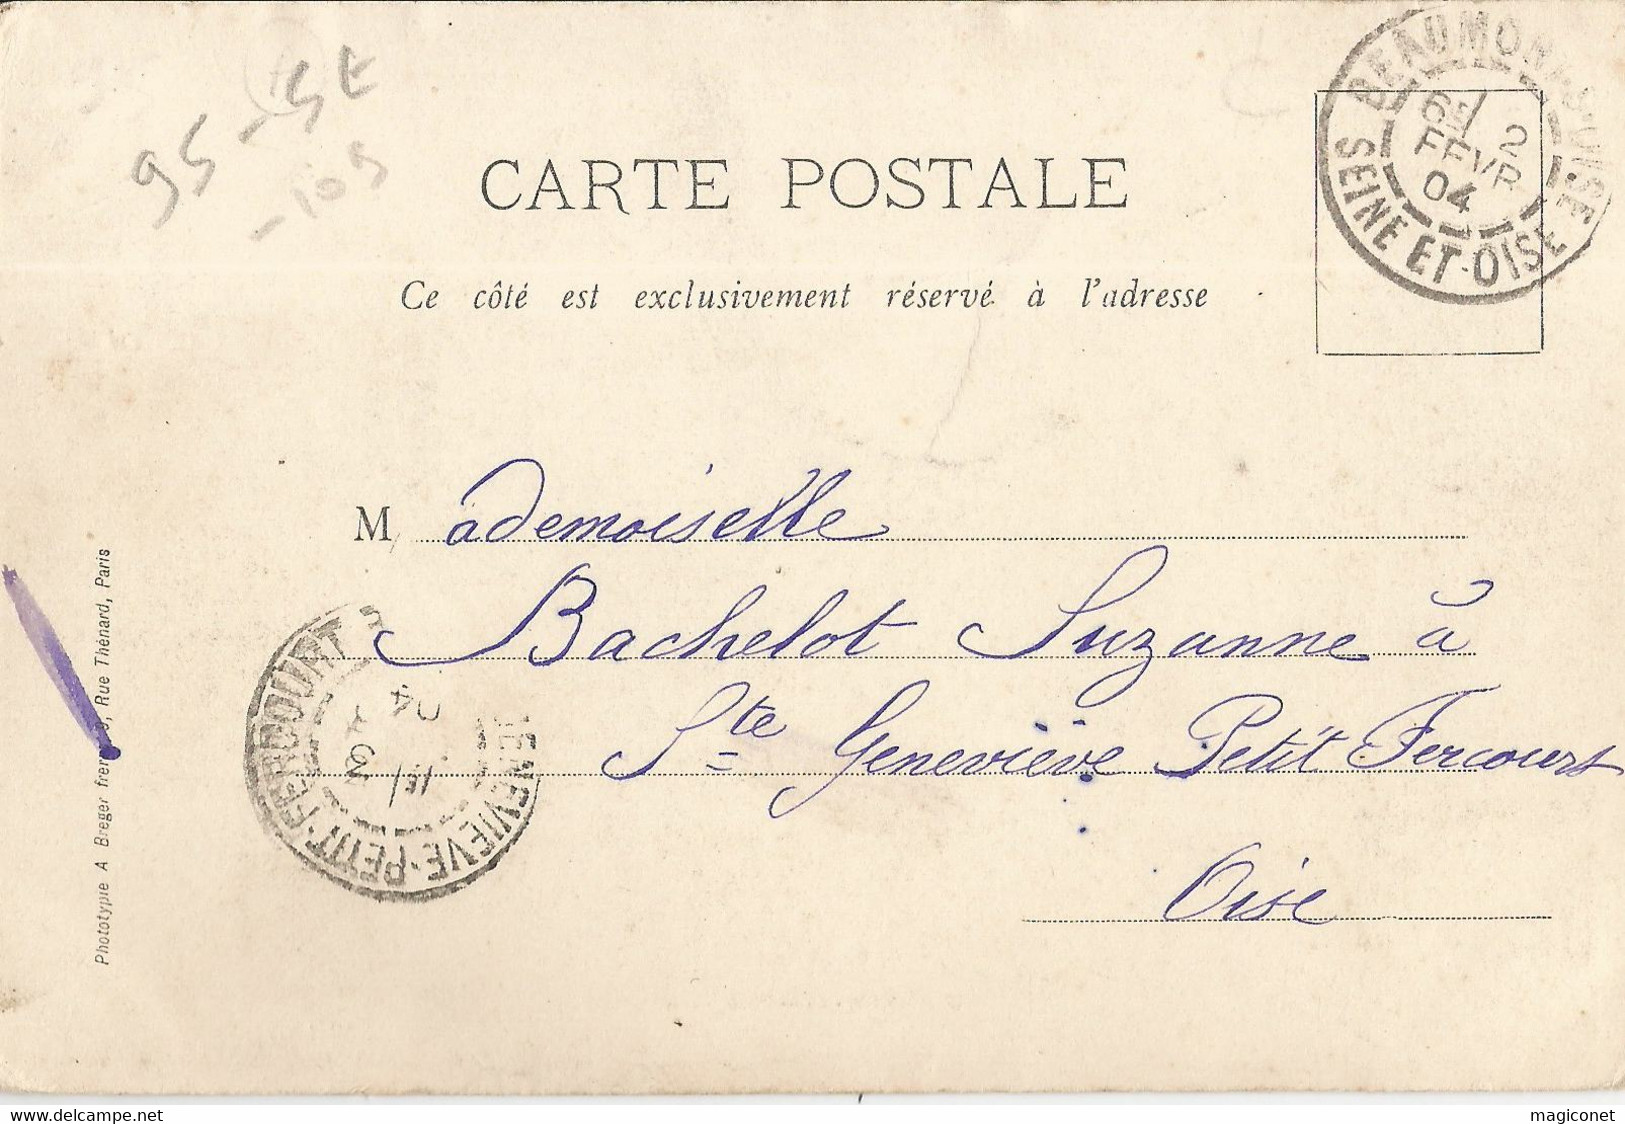 95-St
-105
CARTE POSTALE
Ce côté est exclusivement réservé à l'adresse
BEAUMONT-S-OISE
6E / 2
FEVR
04
SEINE ET-OISE
Mademoiselle
Bachelot Suzanne à
Ste Geneviève Petit Fercourt
Oise
GENEVIEVE-PETIT-FERCOURT
1E/
04
Phototypie A Breger frères, Rue Thénard, Paris
www.delcampe.net
magiconet